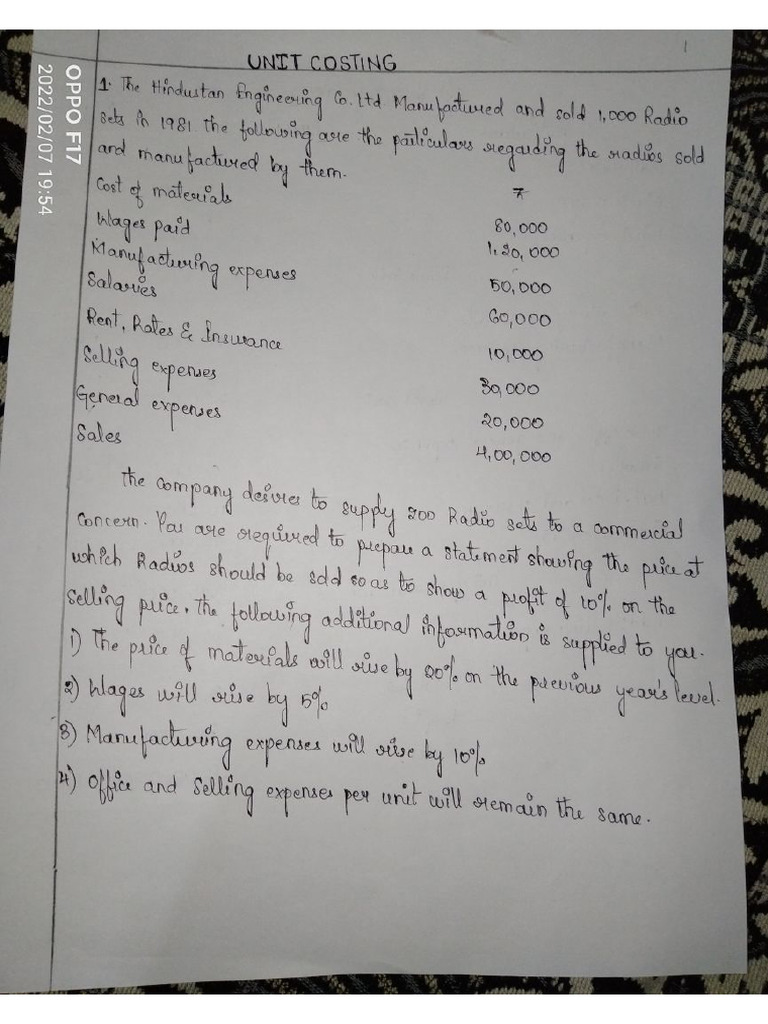 1
UNIT COSTING
1. The Hindustan Engineering Co. Ltd Manufactured and sold 1,000 Radio
sets in 1981 the following are the particulars regarding the radios sold
and manufactured by them.
₹
Cost of materials 80,000
Wages paid 1,20,000
Manufacturing expenses 50,000
Salaries 60,000
Rent, Rates & Insurance 10,000
Selling expenses 30,000
General expenses 20,000
Sales 4,00,000
The company desires to supply Radio sets to a commercial
concern. You are required to prepare a statement showing the price at
which Radios should be sold so as to show a profit of 10% on the
selling price. The following additional information is supplied to you.
1) The price of materials will rise by 20% on the previous year's level.
2) Wages will rise by 5%
3) Manufacturing expenses will rise by 10%
4) Office and Selling expenses per unit will remain the same.
OPPO F17
2022/02/07 19:54